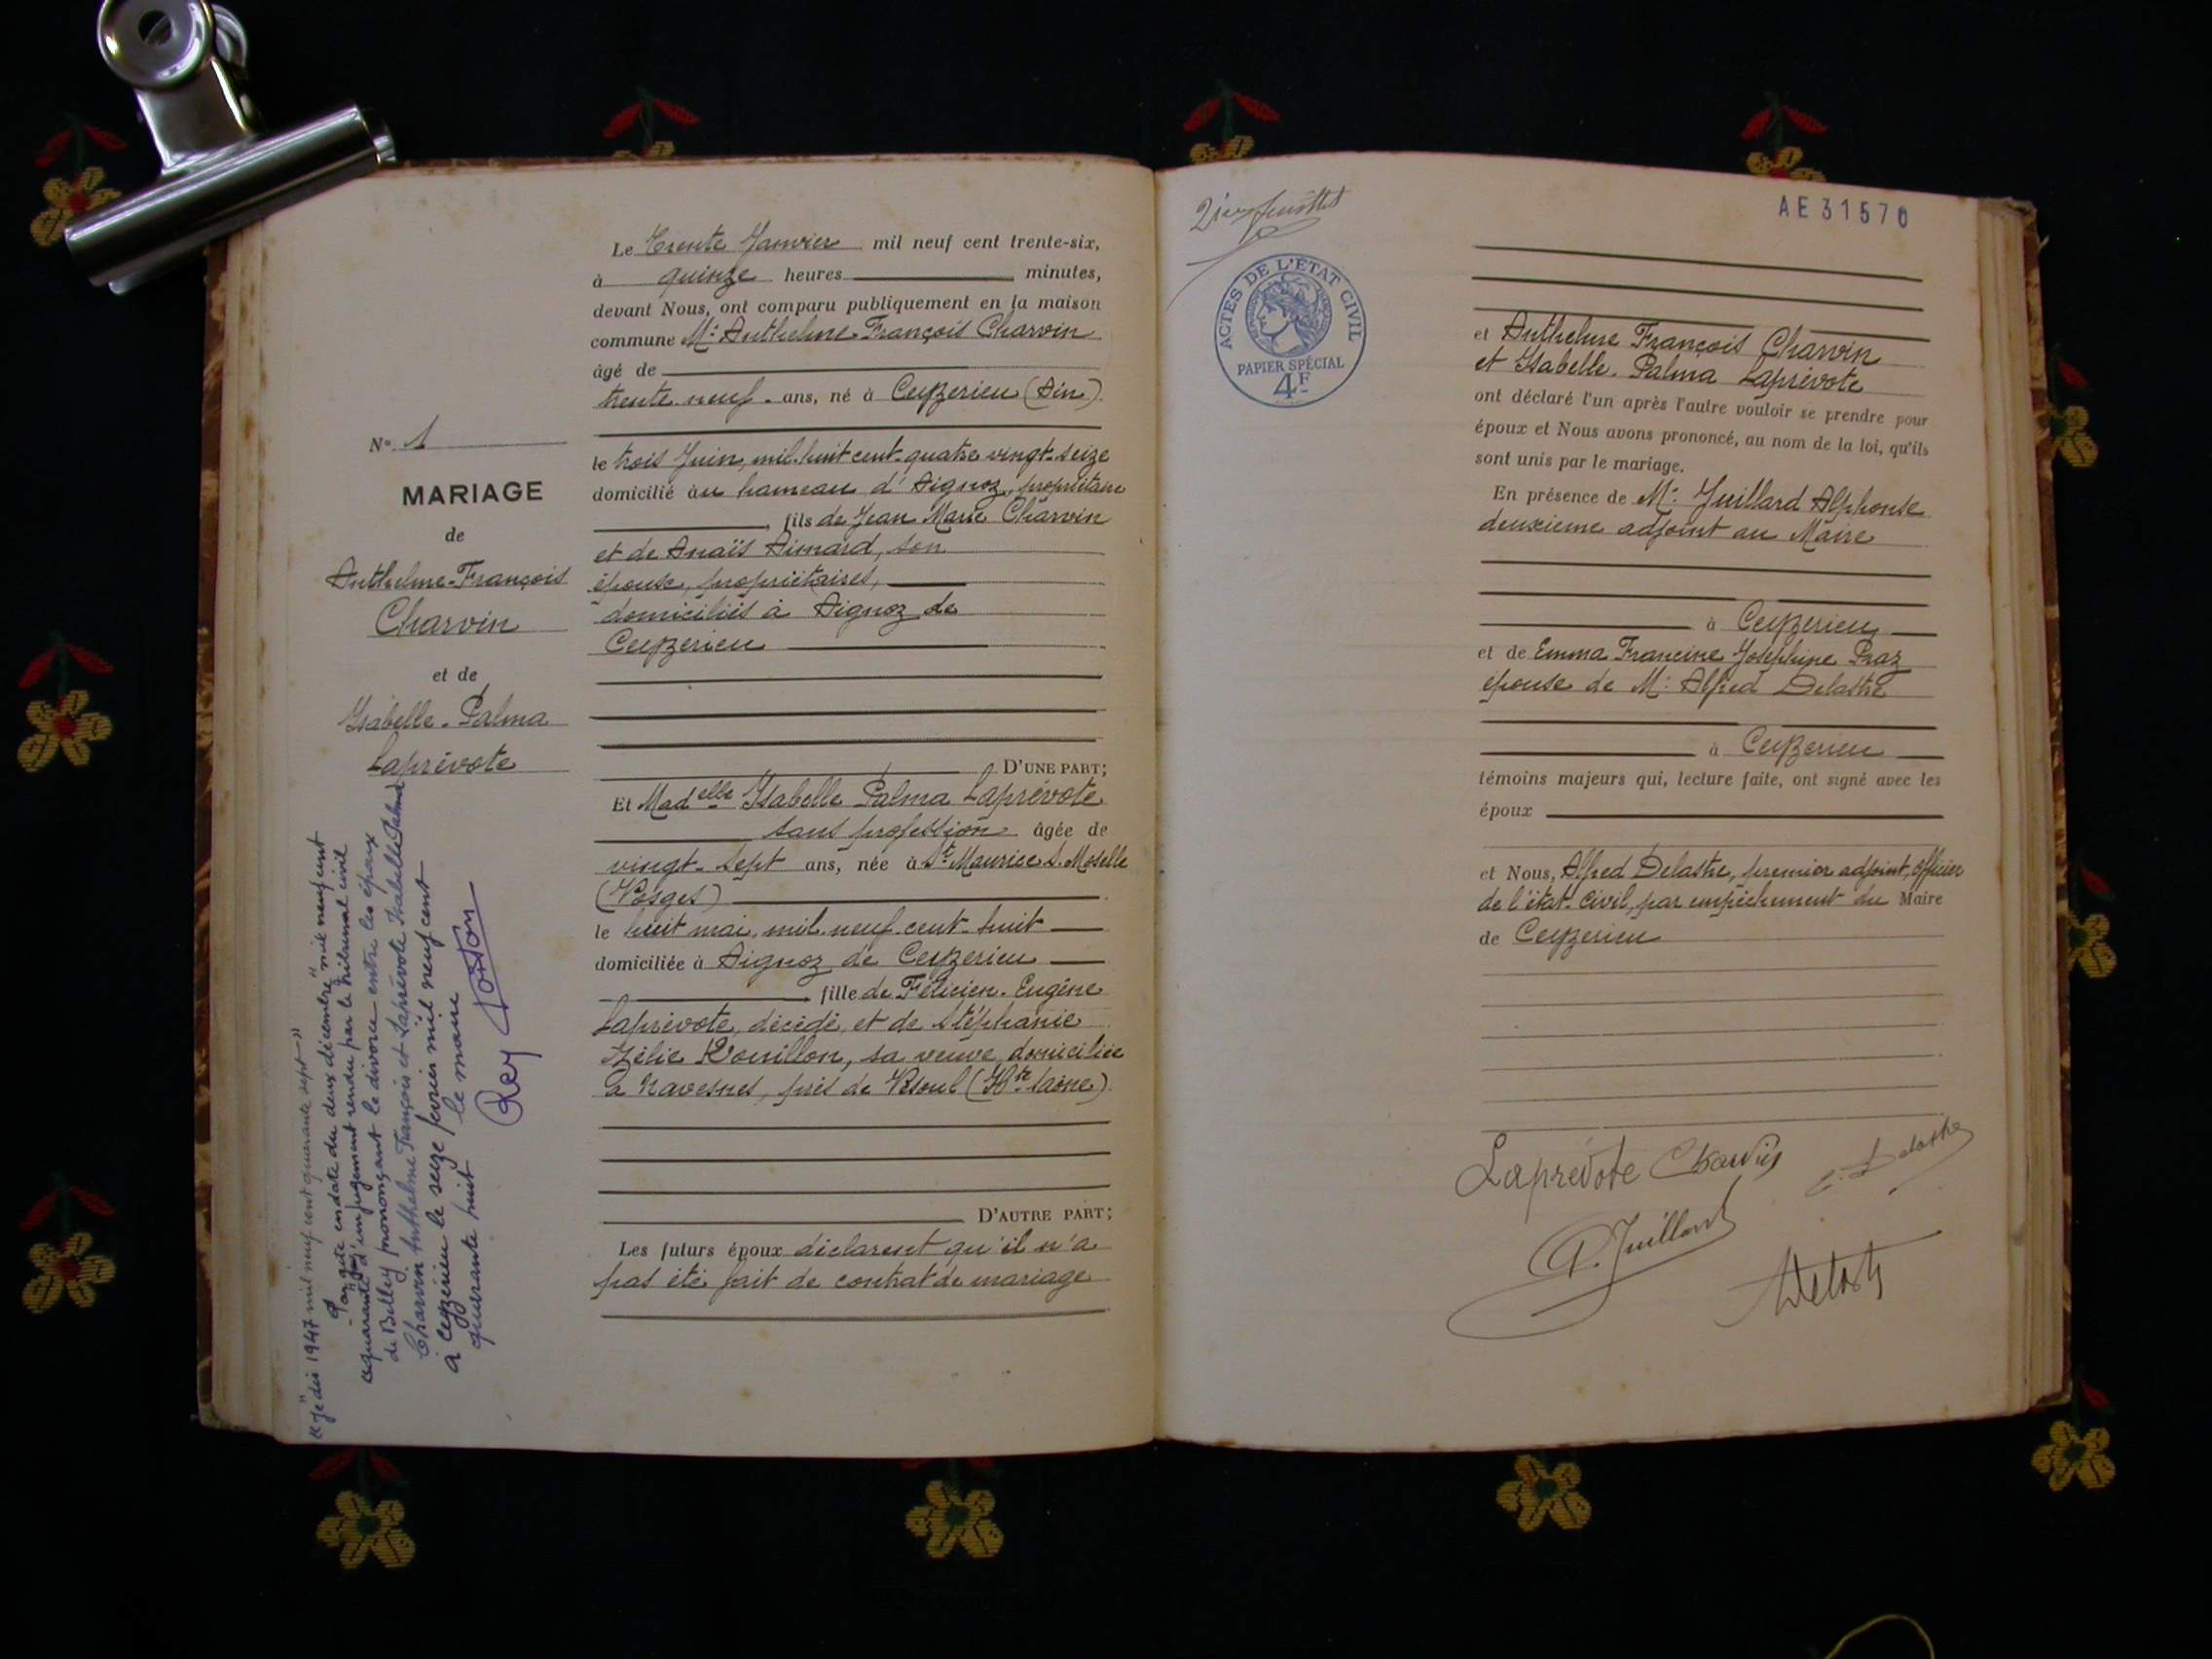 N° 1
MARIAGE
de
Anthelme-François
Charvin
et de
Isabelle-Palma
Laprévote
mil neuf cent quarante sept
en date du deux décembre mil neuf cent
jugement rendu par le tribunal civil
de Belley prononçant le divorce entre les époux
Charvin Anthelme François et Laprévote Isabelle Palma
à Ceyzérieu le seize février mil neuf cent
quarante huit le maire
Rey
Le Trente Janvier mil neuf cent trente-six,
à quinze heures minutes,
devant Nous, ont comparu publiquement en la maison
commune Mr Anthelme-François Charvin
âgé de
trente neuf - ans, né à Ceyzerieu (Ain)
le trois Juin, mil-huit cent-quatre vingt-seize
domicilié au hameau d'Aignoz, propriétaire
, fils de Jean Marie Charvin
et de Anaïs Aimard, son
épouse, propriétaires,
domiciliés à Aignoz de
Ceyzerieu
D'UNE PART;
Et Madelle Isabelle Palma Laprévote
sans profession âgée de
vingt-sept ans, née à St Maurice s. Moselle
(Vosges)
le huit mai, mil-neuf-cent-huit
domiciliée à Aignoz de Ceyzerieu
, fille de Félicien-Eugène
Laprévote, décédé, et de Stéphanie
Zélie Rouillon, sa veuve, domiciliée
à Navesnes, près de Vesoul (Hte Saône)
D'AUTRE PART;
Les futurs époux déclarent qu'il n'a
pas été fait de contrat de mariage
2ième feuillet
ACTES DE L'ÉTAT CIVIL
PAPIER SPÉCIAL
4F
AE 31570
et Anthelme François Charvin
et Isabelle-Palma Laprévote
ont déclaré l'un après l'autre vouloir se prendre pour
époux et Nous avons prononcé, au nom de la loi, qu'ils
sont unis par le mariage.
En présence de Mr Juillard Alphonse
deuxième adjoint au Maire
à Ceyzerieu
et de Emma Francine Joséphine Praz
épouse de Mr Alfred Delastre
à Ceyzerieu
témoins majeurs qui, lecture faite, ont signé avec les
époux
et Nous, Alfred Delastre, premier adjoint, officier
de l'état-civil, par empêchement du Maire
de Ceyzerieu
Laprévote Charvin E. Delastre
A. Juillard
A Delastre